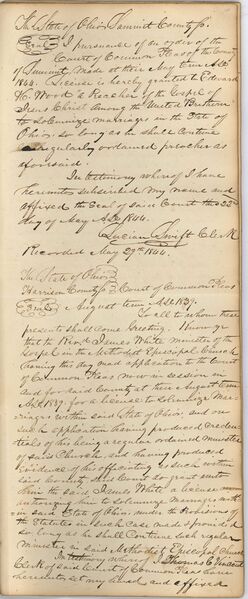 The State of Ohio, Summit County ss.
Seal I pursuance of an order of the
Court of Common Pleas of the County
of Summit, Made at their May Term AD
1844. License is hereby granted to Edward
H. Wood a Preacher of the Gospel of
Jesus Christ among the United Brethern
to Solemnize marriages in the State of
Ohio, so long as he shall Continue
a regularly ordained preacher as
aforesaid.
In testimony whereof I have
hereunto subscribed my name and
affixed the Seal of said Court this 28
day of May AD 1844.
Lucian Swift Clerk
Recorded May 29th 1844.
The State of Ohio
Harrison County Court of Common Pleas
Seal August term AD. 1839.
To all to whom these
presents shall come Greeting. Know ye
that the Rev. James White minister of the
Gospel in the Methodist Episcopal Church
having this day made application to the Court
of Common Pleas now in session in
and for said County at their August term
AD. 1839. for a license to Solemnize Mar-
riages within said State of Ohio, and on
such application having produced Creden-
tials of his being a regular ordained Minister
of said Church, and having produced
Evidence of his officiating as such within
said County said Court do grant unto
him the said James White a License
authorizing him to Solemnize marriages
in said State of Ohio, under the Provisions of
the Statutes in such case made & provided
so long as he shall Continue such regular
Minister in said Methodist Episcopal Church
In testimony whereof I Thomas C. Vincent
Clerk of said Court of Common Pleas have
hereunto set my hand and affixed